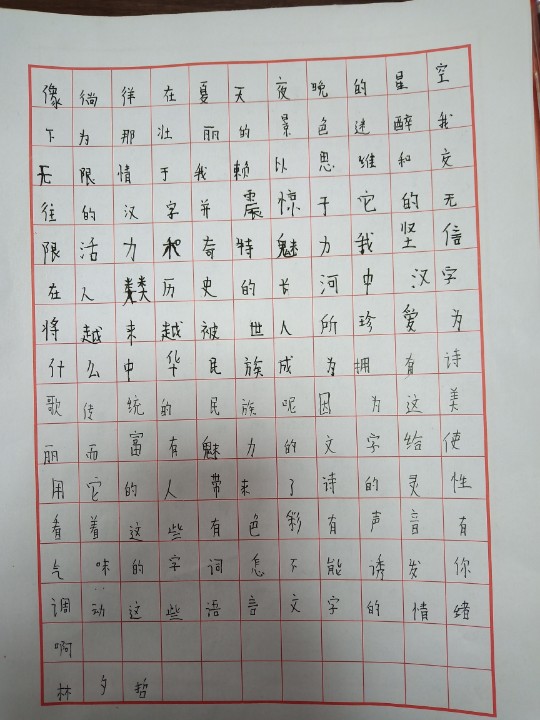 像徜徉在夏天夜晚的星空
下为那壮丽的景色迷醉我
无限情于我赖以思维和交
往的汉字并震惊于它的无
限活力和奇特魅力我坚信
在人类历史的长河中汉字
将越来越被世人所珍爱为
什么中华民族成为拥有诗
歌传统的民族呢因为这美
丽而富有魅力的文字给使
用它的人带来了诗的灵性
看着这些有色彩有声音有
气味的字词怎不能诱发你
调动这些语言文字的情绪
啊
林夕哲